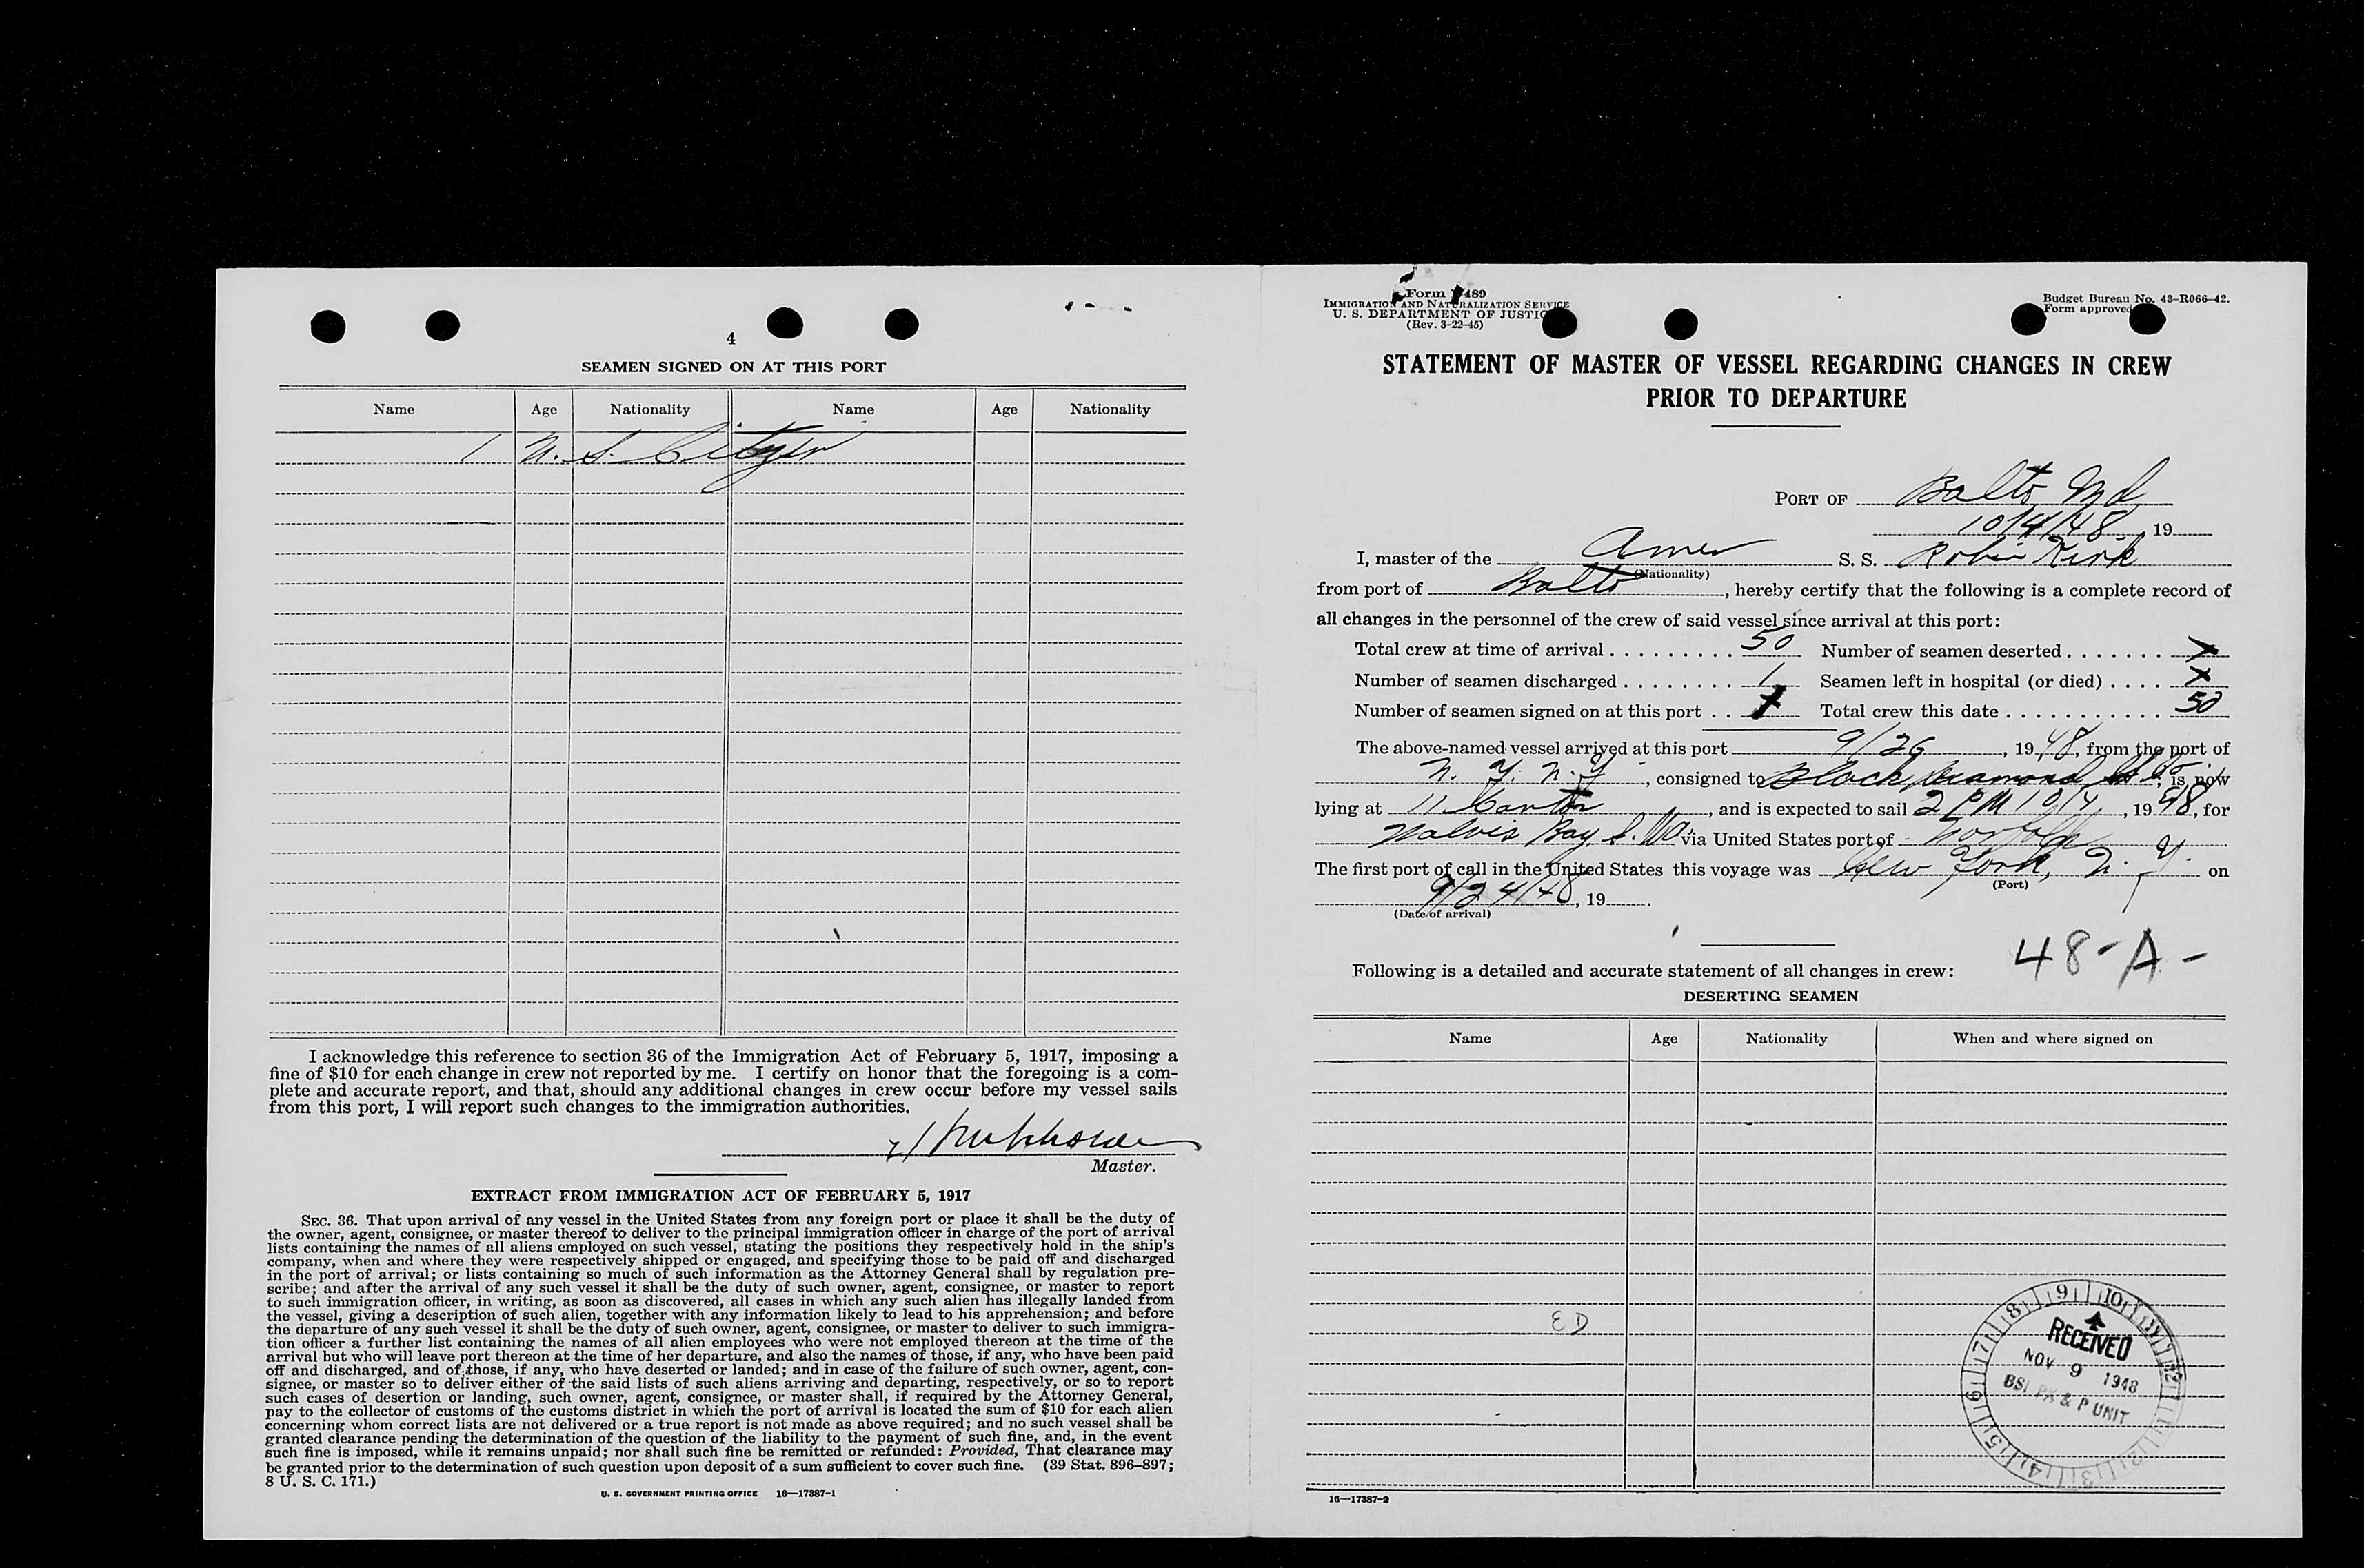 4
SEAMEN SIGNED ON AT THIS PORT
Name Age Nationality Name Age Nationality
1 U. S. Citizen
I acknowledge this reference to section 36 of the Immigration Act of February 5, 1917, imposing a
fine of $10 for each change in crew not reported by me. I certify on honor that the foregoing is a com-
plete and accurate report, and that, should any additional changes in crew occur before my vessel sails
from this port, I will report such changes to the immigration authorities.
Master.
EXTRACT FROM IMMIGRATION ACT OF FEBRUARY 5, 1917
SEC. 36. That upon arrival of any vessel in the United States from any foreign port or place it shall be the duty of
the owner, agent, consignee, or master thereof to deliver to the principal immigration officer in charge of the port of arrival
lists containing the names of all aliens employed on such vessel, stating the positions they respectively hold in the ship's
company, when and where they were respectively shipped or engaged, and specifying those to be paid off and discharged
in the port of arrival; or lists containing so much of such information as the Attorney General shall by regulation pre-
scribe; and after the arrival of any such vessel it shall be the duty of such owner, agent, consignee, or master to report
to such immigration officer, in writing, as soon as discovered, all cases in which any such alien has illegally landed from
the vessel, giving a description of such alien, together with any information likely to lead to his apprehension; and before
the departure of any such vessel it shall be the duty of such owner, agent, consignee, or master to deliver to such immigra-
tion officer a further list containing the names of all alien employees who were not employed thereon at the time of the
arrival but who will leave port thereon at the time of her departure, and also the names of those, if any, who have been paid
off and discharged, and of those, if any, who have deserted or landed; and in case of the failure of such owner, agent, con-
signee, or master so to deliver either of the said lists of such aliens arriving and departing, respectively, or so to report
such cases of desertion or landing, such owner, agent, consignee, or master shall, if required by the Attorney General,
pay to the collector of customs of the customs district in which the port of arrival is located the sum of $10 for each alien
concerning whom correct lists are not delivered or a true report is not made as above required; and no such vessel shall be
granted clearance pending the determination of the question of the liability to the payment of such fine, and, in the event
such fine is imposed, while it remains unpaid; nor shall such fine be remitted or refunded: Provided, That clearance may
be granted prior to the determination of such question upon deposit of a sum sufficient to cover such fine. (39 Stat. 896–897;
8 U. S. C. 171.)
U. S. GOVERNMENT PRINTING OFFICE 16—17387-1
Form 489
IMMIGRATION AND NATURALIZATION SERVICE
U. S. DEPARTMENT OF JUSTICE
(Rev. 3-22-45)
Budget Bureau No. 43-R066-42.
Form approved
STATEMENT OF MASTER OF VESSEL REGARDING CHANGES IN CREW
PRIOR TO DEPARTURE
PORT OF Balto Md
10/4/48, 19
I, master of the Amer S. S. Robin Kirk
(Nationality)
from port of Balto, hereby certify that the following is a complete record of
all changes in the personnel of the crew of said vessel since arrival at this port:
Total crew at time of arrival 50 Number of seamen deserted X
Number of seamen discharged 1 Seamen left in hospital (or died) X
Number of seamen signed on at this port 1 Total crew this date 50
The above-named vessel arrived at this port 9/26, 1948, from the port of
N. Y. N. Y, consigned to Black Diamond SS Co., is now
lying at 11 Canton, and is expected to sail 2 PM 10/4, 1948, for
Walvis Bay, S. W. via United States port of Norfolk
The first port of call in the United States this voyage was New York, N. Y. on
(Port)
9/24/48, 19.
(Date of arrival)
48-A-
Following is a detailed and accurate statement of all changes in crew:
DESERTING SEAMEN
Name Age Nationality When and where signed on
ED
RECEIVED
NOV 9 1948
BSI PX & P UNIT
16—17387-2